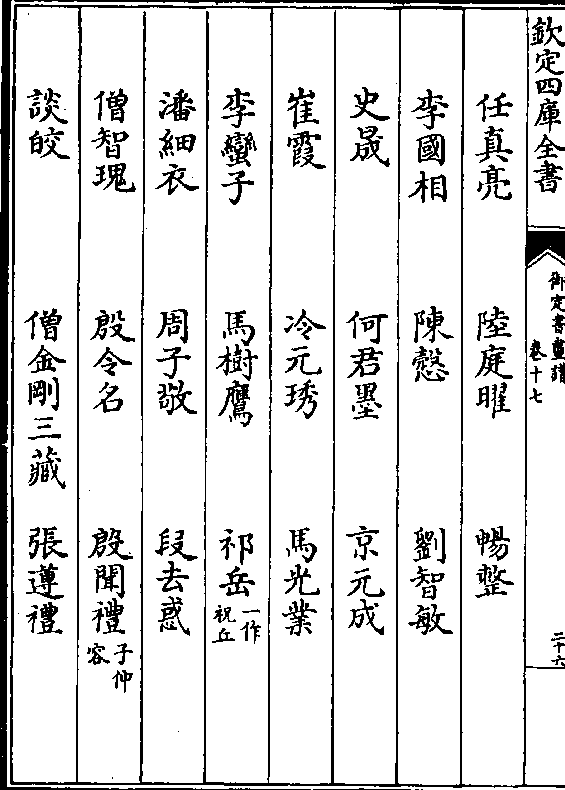 欽定四庫全書
御定書畫譜
卷十七
二十六
任真亮 陸庭曜 暢整
李國相 陳慤 劉智敏
史晟 何君墨 京元成
崔霞 冷元琇 馬光業
李蠻子 馬樹鷹 祁岳一作祝丘
潘細衣 周子敬 段去惑
僧智瑰 殷令名 殷聞禮子仲容
談皎 僧金剛三藏 張遵禮